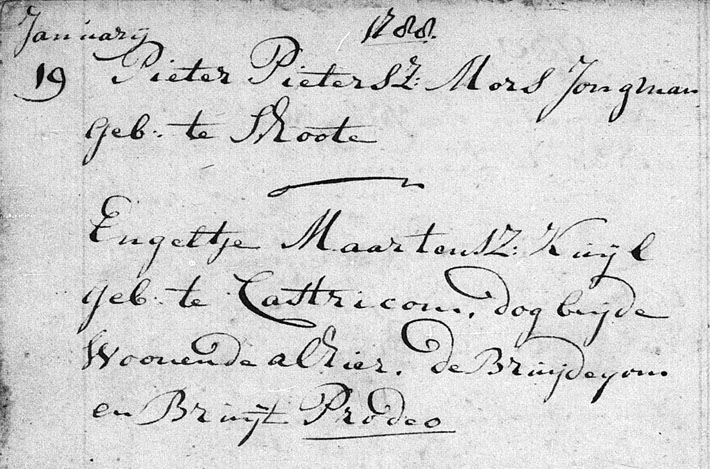 January 1788.
19 Pieter Pietersz: Mors Jongman
geb: te Schoote
Engeltje Maartensz: Kuijl
geb: te Castricom, dog beijde
Woonende alhier. de Bruijdegom
en Bruijt Prodeo